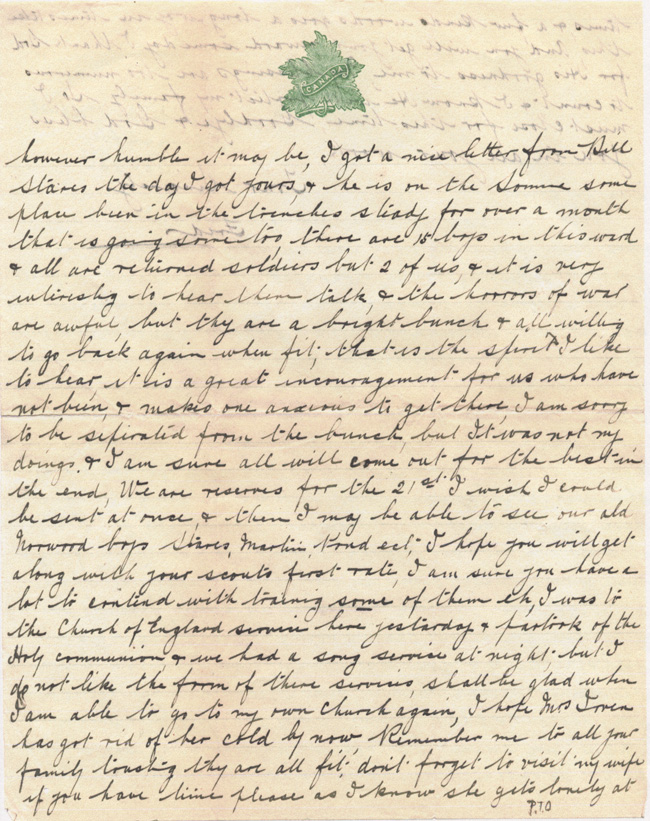 CANADA
however humble it may be, I got a nice letter from Bill
Stares the day I got yours & he is on the Somme some
place been in the trenches steady for over a month
that is going some too, there are 15 boys in this ward
& all are returned soldiers but 2 of us, & it is very
intireshg to hear them talk, & the horrors of war
are awful, but thy are a bright bunch & all willig
to go back again when fit, that is the spirit I like
to hear, it is a great encouragement for us who have
not been, & makes one anxious to get there, I am sorry
to be sepirated from the bunch, but It was not my
doings, & I am sure all will come out for the best in
the end, We are reserves for the 21st I wish I could
be sent at once, & then I may be able to see our old
Norwood boys Stares, Martin, Kond ect, I hope you will get
along with your scouts first rate, I am sure you have a
lot to contend with trainig some of them eh, I was to
the Church of England service here yestarday & partook of the
Holy communion & we had a song service at night, but I
do not like the form of there services, shall be glad when
I am able to go to my own Church again, I hope Mrs Irven
has got rid of her cold by now, Remember me to all your
family trustig thy are all fit, don't forget to visit my wife
if you have time please as I know she gets lonely at
P.T.O